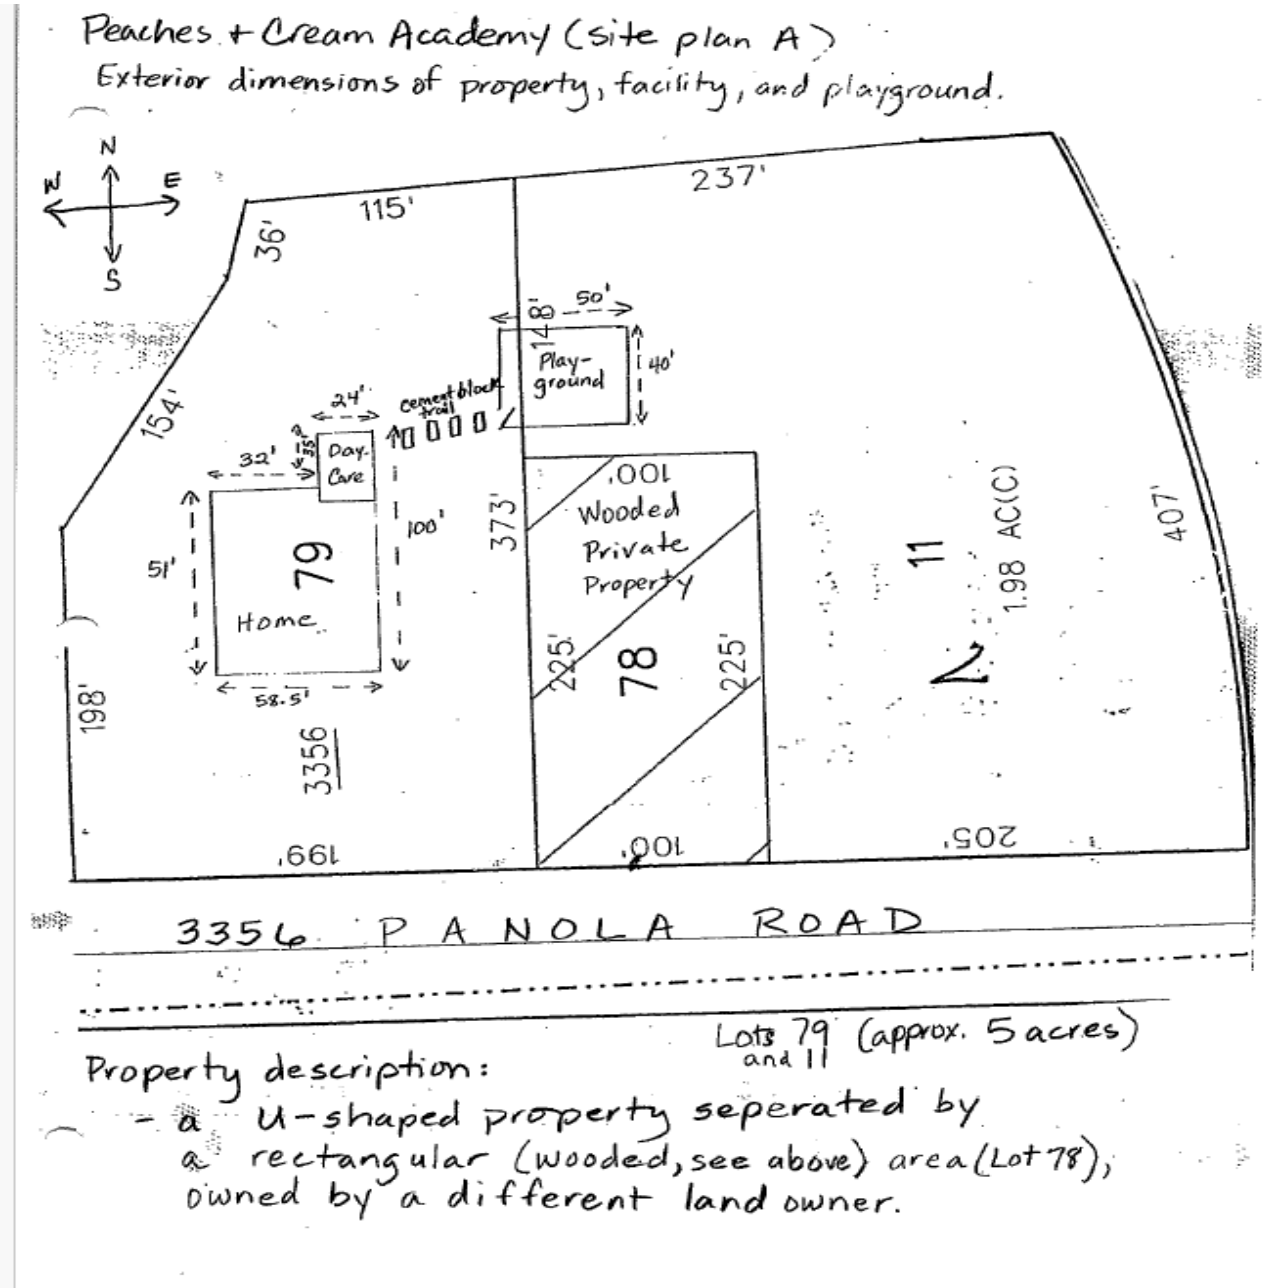 Peaches + Cream Academy (site plan A)
Exterior dimensions of property, facility, and playground.
N
W E
S
115'
237'
36'
148'
50'
Play-
ground
40'
154'
24'
cement block
trail
35'
Day-
Care
32'
100'
51'
79
Home
58.5'
373'
100'
Wooded
Private
Property
225'
78
225'
11
1.98 AC(C)
407'
198'
3356
199'
100'
205'
3356 PANOLA ROAD
Lots 79 (approx. 5 acres)
and 11
Property description:
- a U-shaped property seperated by
a rectangular (wooded, see above) area (Lot 78),
owned by a different land owner.